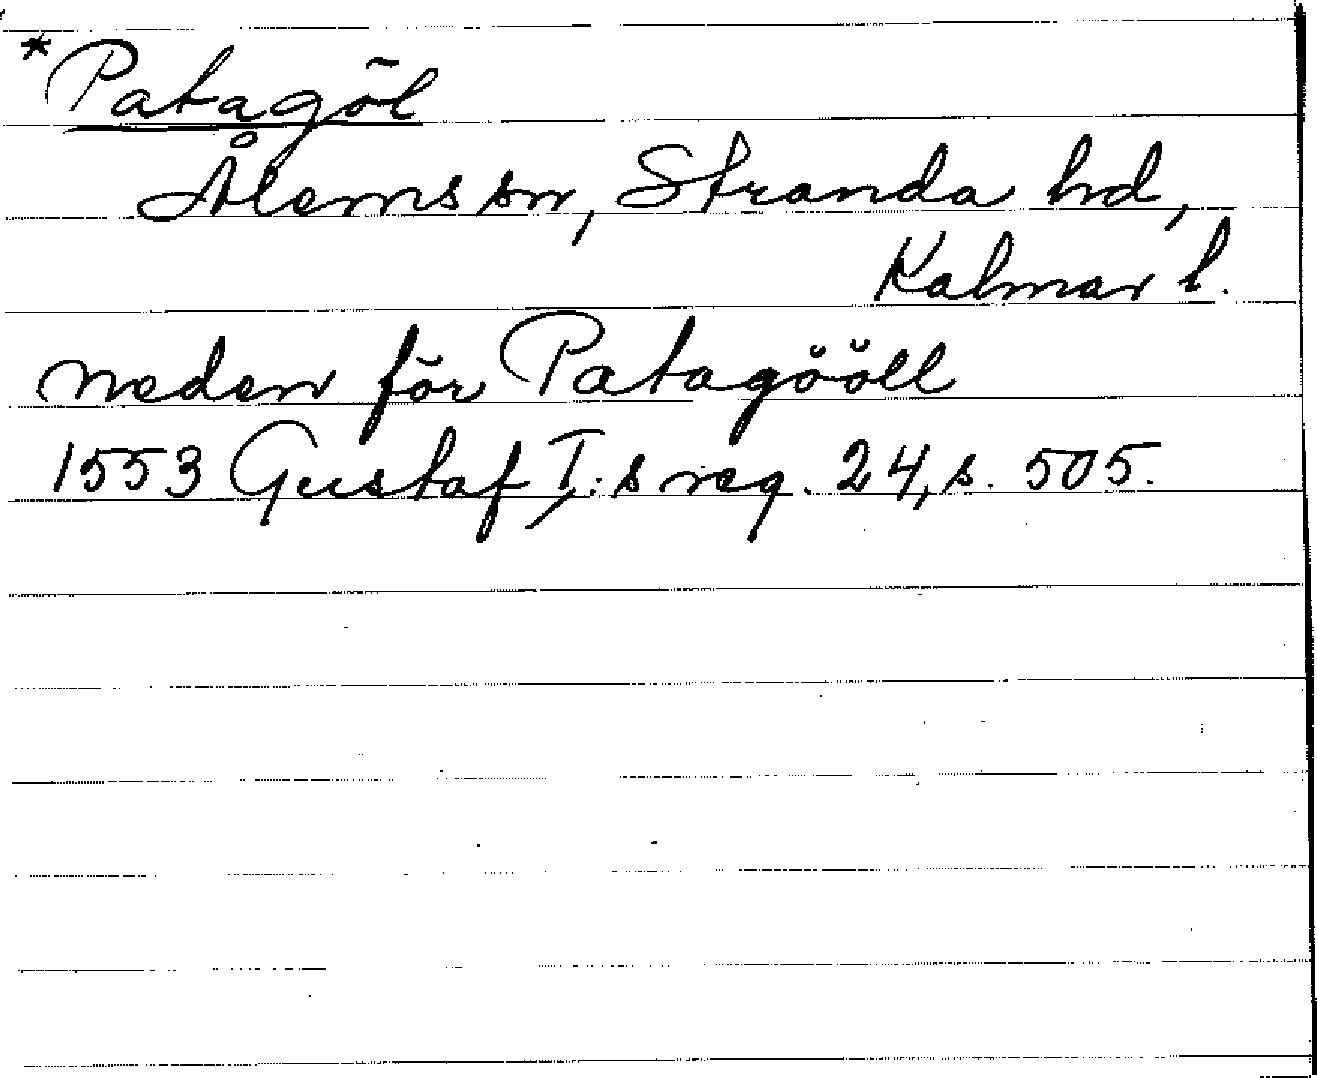 *Patagöl
Ålems sn, Stranda hd,
Kalmar l.
neden för Patagööll
1553 Gustaf I:s reg. 24, s. 505.